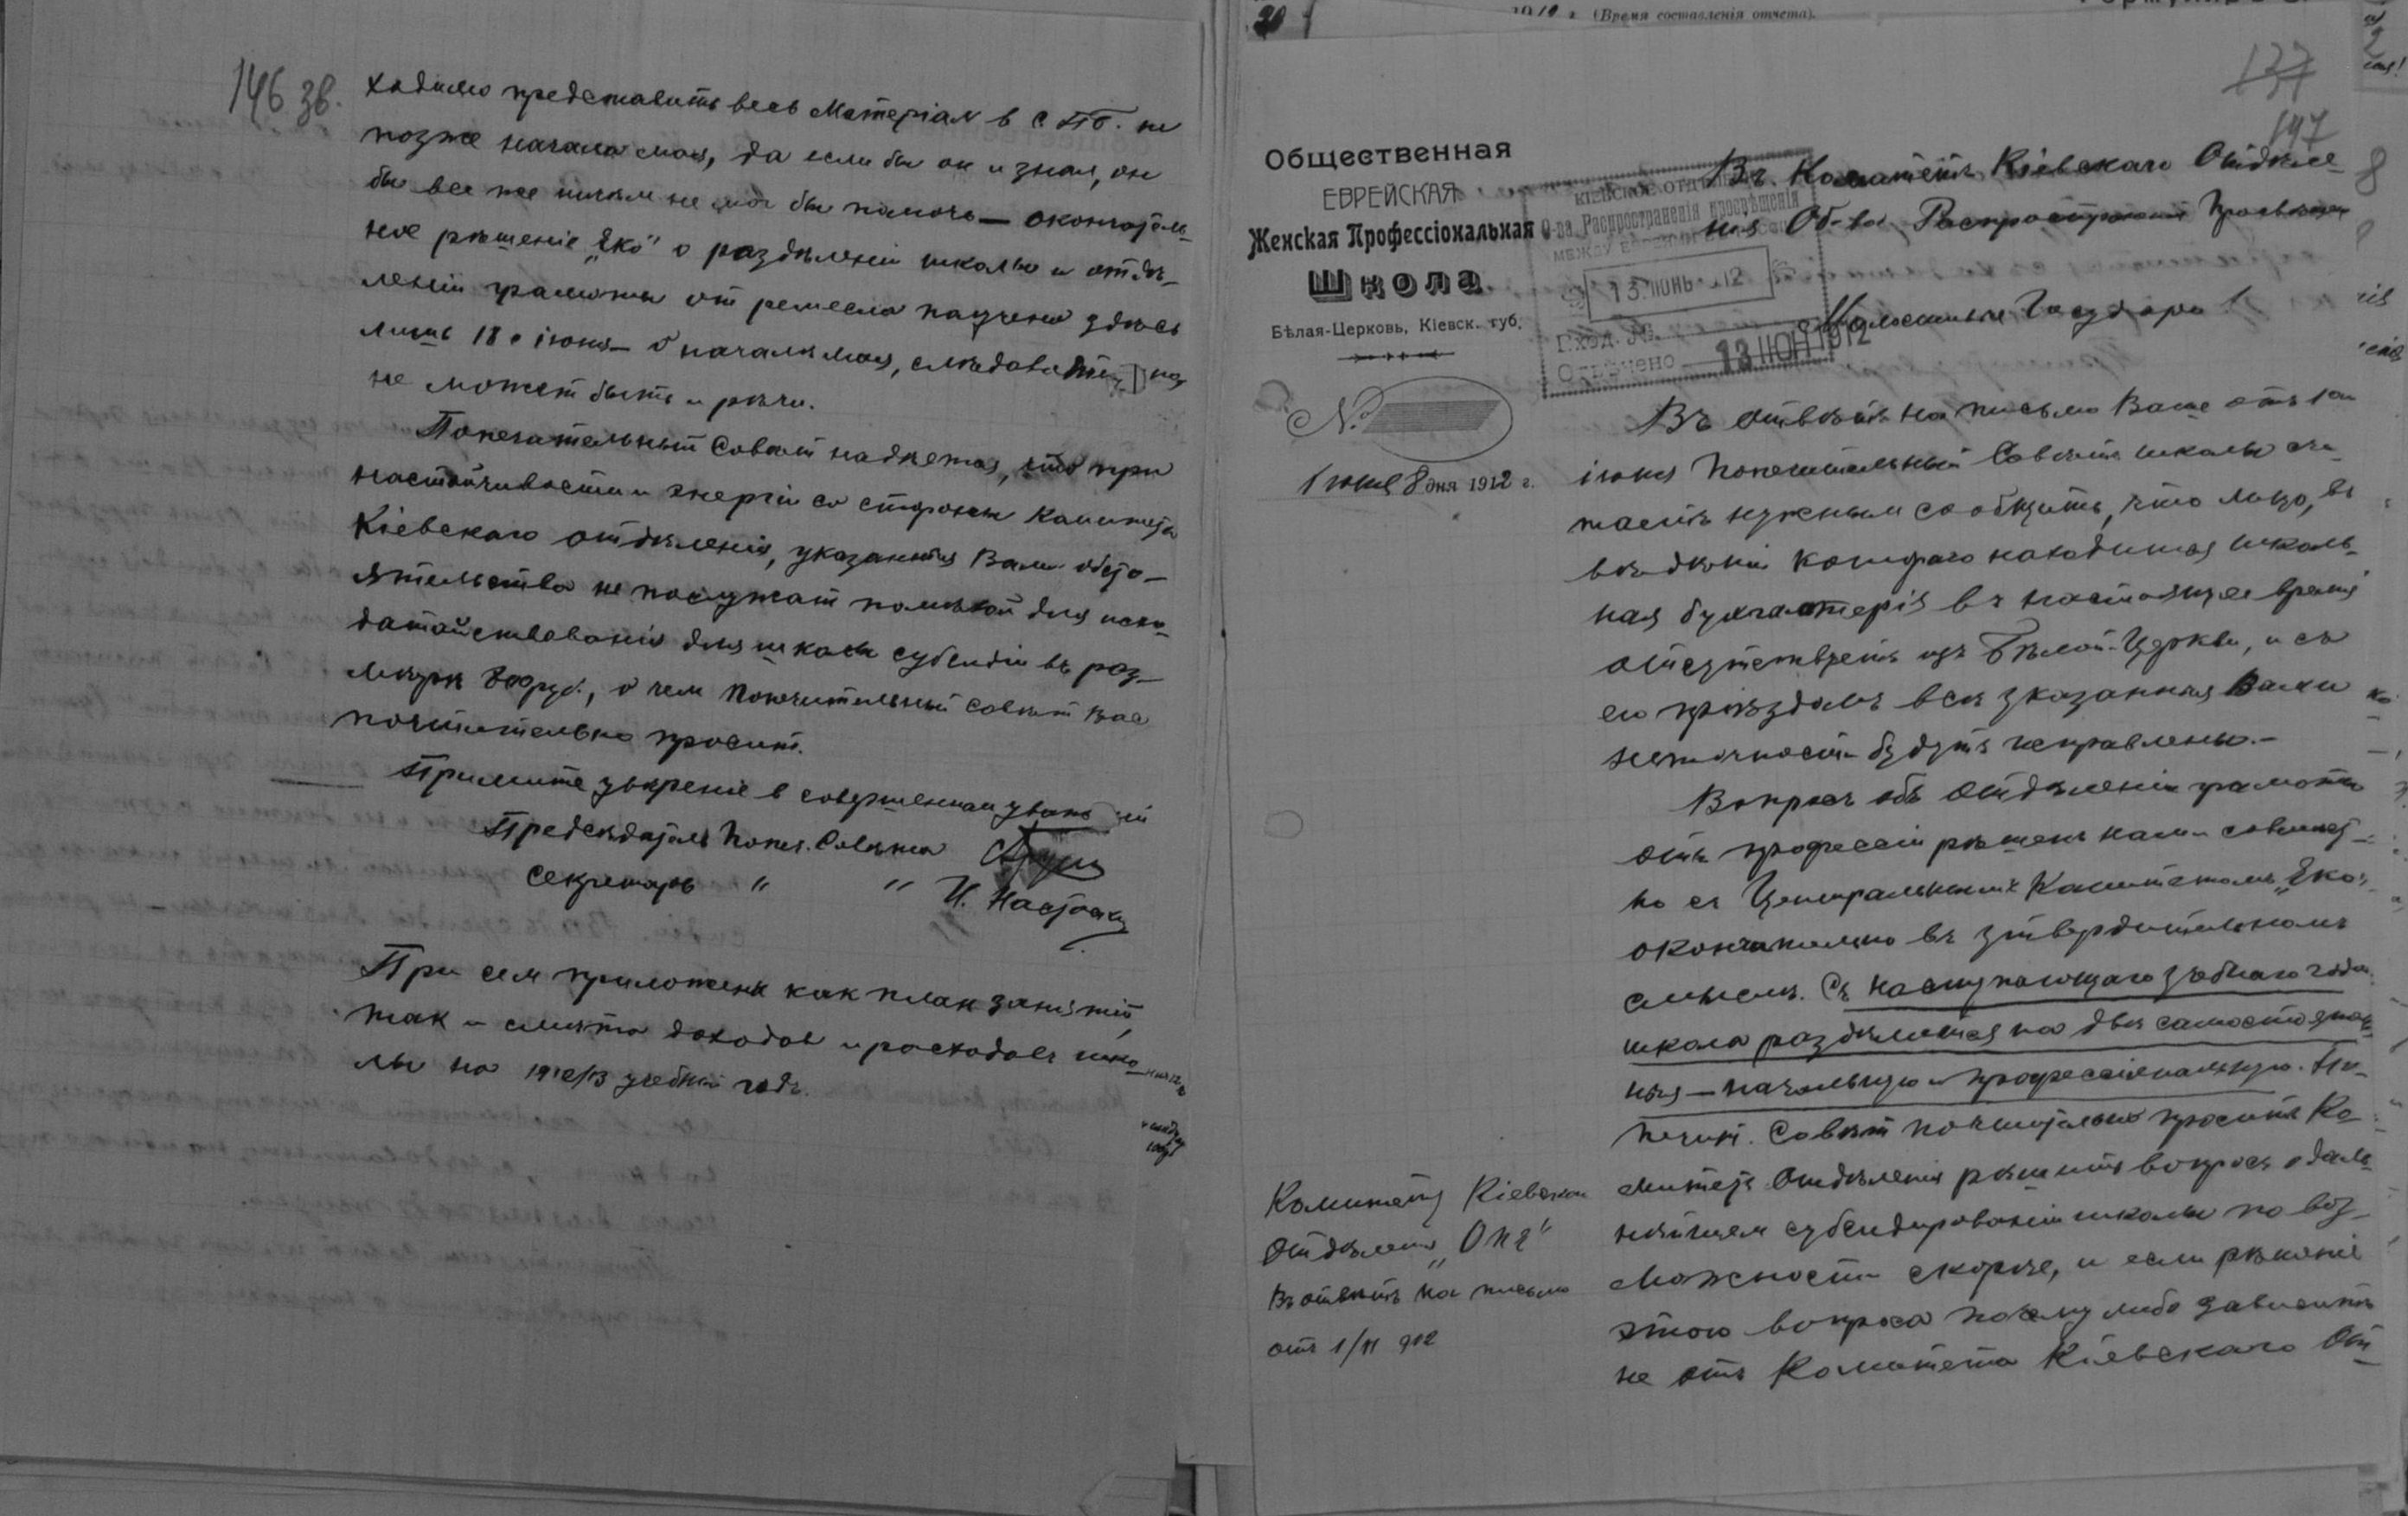 146 зв.
ходимо представить весь Матеріал в С ПБ. не
позже начала мая, да если бы он и знал, он
бы все же ничем не мог бы помочь — окончатель-
ное рѣшеніе „Еко" о раздѣленіи школы и отдѣ-
леніи грамоты от ремесла получено здѣсь
лишь 18 іюня — о началѣ мая,
не может быть и рѣчи.
Попечительный Совѣт надѣется, что при
настойчивости и энергіи со стороны Комитета
Кіевскаго отдѣленія, указанныя Вами обсто-
ятельства не послужат помѣхой для исхо-
датайствованія для школы субсидіи въ раз-
мѣрѣ 800 руб., о чем Попечительный совѣт Вас
почтительно просит.
Примите увѣреніе в совершенном уваженіи
Предсѣдатель Попеч. Совѣта
Секретарь " "
При сем приложены как план занятій,
так и смѣта доходов и расходов шко-
лы на 1912/13 учебный годъ.
20
191 г. (Время составленія отчета).
137
147
Общественная
ЕВРЕЙСКАЯ
Женская Профессіональная
Школа
Бѣлая-Церковь, Кіевск. губ.
№
іюня 8 дня 1912 г.
КІЕВСКОЕ ОТДѢЛЕНІЕ
О-ва Распространенія просвѣщенія
МЕЖДУ ЕВРЕЯМИ
13 ІЮНЬ 12
Вход. №
Отвѣчено 13 ІЮН 1912
Въ Комитетъ Кіевскаго Отдѣле-
нія Об-ва Распространенія Просвѣщен
Милостивые Государи!
Въ отвѣтъ на письмо Ваше отъ 1го
іюня Попечительный Совѣтъ школы счи-
таетъ нужным сообщить, что лицо, въ
вѣдѣніи котораго находится школь-
ная бухгалтерія въ настоящее время
отсутствуетъ изъ Бѣлой-Церкви, и съ
его пріѣздомъ всѣ указанныя Вами
неточности будутъ исправлены.—
Вопросъ объ отдѣленіи грамоты
отъ професcіи рѣшенъ нами совмѣст-
но съ Центральнымъ Комитетомъ „Еко"
окончательно въ утвердительномъ
смыслѣ. Съ наступающаго учебнаго года
школа раздѣлится на двѣ самостоятель-
ныя — начальную и профессіональную. По-
печит. Совѣт почтительно проситъ Ко-
митетъ Отдѣленія рѣшить вопросъ о даль-
нѣйшем субсидированіи школы по воз-
можности скорѣе, и если рѣшеніе
этого вопроса почему либо зависитъ
не отъ Комитета Кіевскаго От-
Комитету Кіевскаго
Отдѣленія „ОПЕ"
Въ отвѣтъ на письмо
отъ 1/VI 912